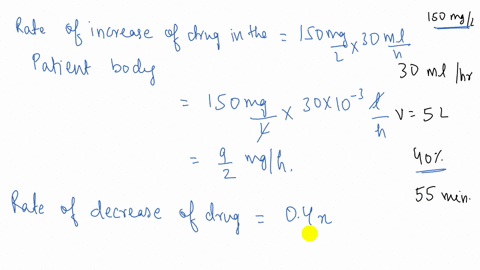 Rate of increase of drug in the = 150 mg/2 × 30 ml/h
Patient body
= 150 mg/L × 30×10⁻³ L/h
= 9/2 mg/h.
Rate of decrease of drug = 0.4x
150 mg/L
30 ml/hr
V = 5L
40%
55 min.